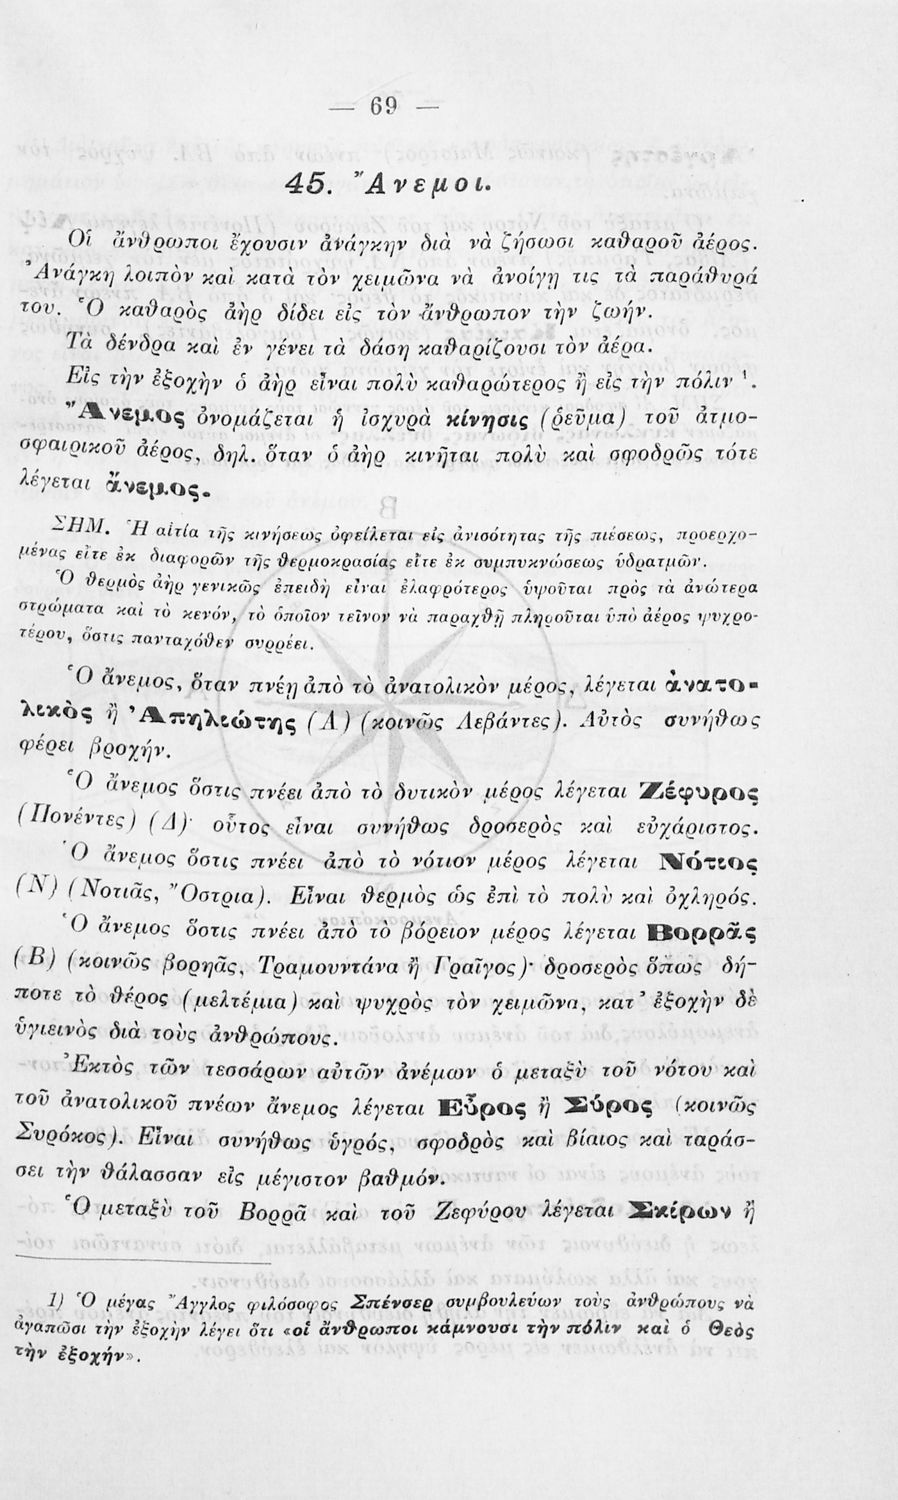 — 69 —
45. Ἄνεμοι.
Οἱ ἄνθρωποι ἔχουσιν ἀνάγκην διὰ νὰ ζήσωσι καθαροῦ ἀέρος.
Ἀνάγκη λοιπὸν καὶ κατὰ τὸν χειμῶνα νὰ ἀνοίγῃ τις τὰ παράθυρά
του. Ὁ καθαρὸς ἀὴρ δίδει εἰς τὸν ἄνθρωπον τὴν ζωήν.
Τὰ δένδρα καὶ ἐν γένει τὰ δάση καθαρίζουσι τὸν ἀέρα.
Εἰς τὴν ἐξοχὴν ὁ ἀὴρ εἶναι πολὺ καθαρώτερος ἢ εἰς τὴν πόλιν ¹.
Ἄνεμος ὀνομάζεται ἡ ἰσχυρὰ κίνησις (ῥεῦμα) τοῦ ἀτμο-
σφαιρικοῦ ἀέρος, δηλ. ὅταν ὁ ἀὴρ κινῆται πολὺ καὶ σφοδρῶς τότε
λέγεται ἄνεμος.
ΣΗΜ. Ἡ αἰτία τῆς κινήσεως ὀφείλεται εἰς ἀνισότητας τῆς πιέσεως, προερχο-
μένας εἴτε ἐκ διαφορῶν τῆς θερμοκρασίας εἴτε ἐκ συμπυκνώσεως ὑδρατμῶν.
Ὁ θερμὸς ἀὴρ γενικῶς ἐπειδὴ εἶναι ἐλαφρότερος ὑψοῦται πρὸς τὰ ἀνώτερα
στρώματα καὶ τὸ κενόν, τὸ ὁποῖον τεῖνον νὰ παραχθῇ πληροῦται ὑπὸ ἀέρος ψυχρο-
τέρου, ὅστις πανταχόθεν συρρέει.
Ὁ ἄνεμος, ὅταν πνέῃ ἀπὸ τὸ ἀνατολικὸν μέρος, λέγεται ἀνατο-
λικὸς ἢ Ἀπηλιώτης (Α) (κοινῶς Λεβάντες). Αὐτὸς συνήθως
φέρει βροχήν.
Ὁ ἄνεμος ὅστις πνέει ἀπὸ τὸ δυτικὸν μέρος λέγεται Ζέφυρος
(Πονέντες) (Δ)· οὗτος εἶναι συνήθως δροσερὸς καὶ εὐχάριστος.
Ὁ ἄνεμος ὅστις πνέει ἀπὸ τὸ νότιον μέρος λέγεται Νότιος
(Ν) (Νοτιᾶς, Ὄστρια). Εἶναι θερμὸς ὡς ἐπὶ τὸ πολὺ καὶ ὀχληρός.
Ὁ ἄνεμος ὅστις πνέει ἀπὸ τὸ βόρειον μέρος λέγεται Βορρᾶς
(Β) (κοινῶς βορηᾶς, Τραμουντάνα ἢ Γραῖγος)· δροσερὸς ὅπως δή-
ποτε τὸ θέρος (μελτέμια) καὶ ψυχρὸς τὸν χειμῶνα, κατ' ἐξοχὴν δὲ
ὑγιεινὸς διὰ τοὺς ἀνθρώπους.
Ἐκτὸς τῶν τεσσάρων αὐτῶν ἀνέμων ὁ μεταξὺ τοῦ νότου καὶ
τοῦ ἀνατολικοῦ πνέων ἄνεμος λέγεται Εὖρος ἢ Σύρος (κοινῶς
Συρόκος). Εἶναι συνήθως ὑγρός, σφοδρὸς καὶ βίαιος καὶ ταράσ-
σει τὴν θάλασσαν εἰς μέγιστον βαθμόν.
Ὁ μεταξὺ τοῦ Βορρᾶ καὶ τοῦ Ζεφύρου λέγεται Σκίρων ἢ
1) Ὁ μέγας Ἄγγλος φιλόσοφος Σπένσερ συμβουλεύων τοὺς ἀνθρώπους νὰ
ἀγαπῶσι τὴν ἐξοχὴν λέγει ὅτι «οἱ ἄνθρωποι κάμνουσι τὴν πόλιν καὶ ὁ Θεὸς
τὴν ἐξοχήν».